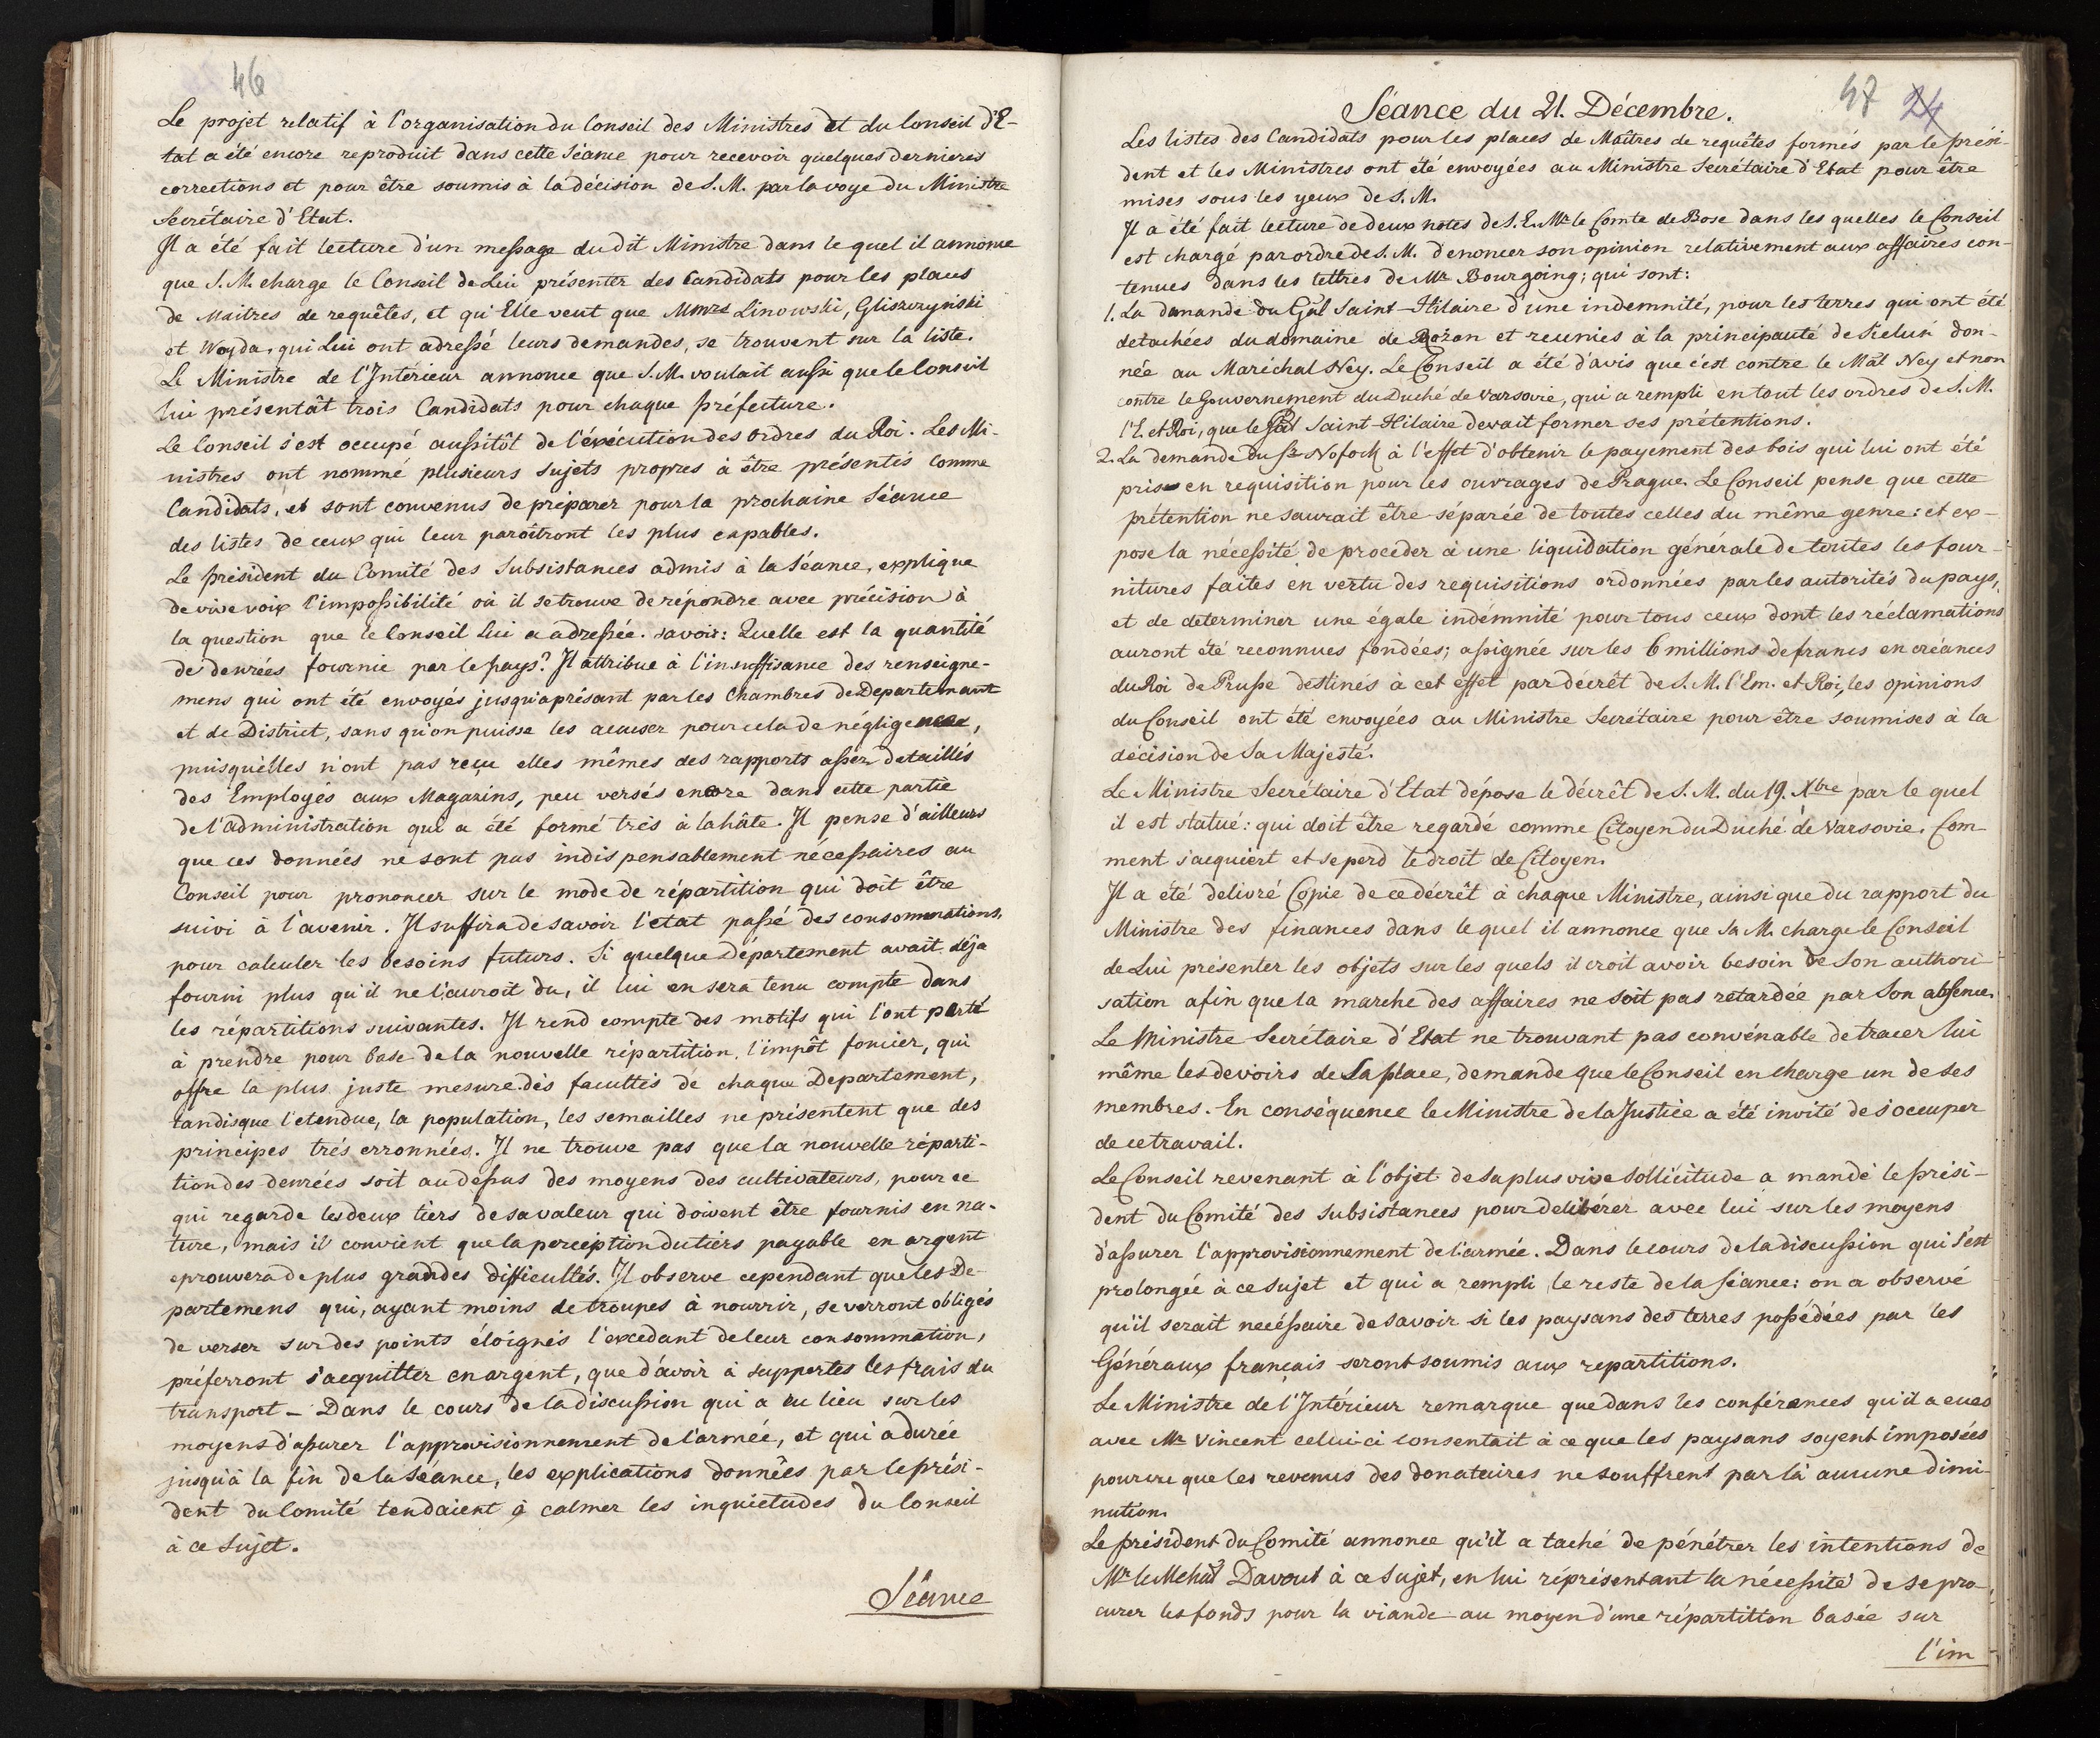 46
Le projet relatif à l'organisation du Conseil des Ministres et du Conseil d'E-
tat a été encore reproduit dans cette Séance pour recevoir quelques dernieres
corrections et pour être soumis à la décision de S. M. par la voye du Ministre
Secrétaire d'Etat.
Il a été fait lecture d'un message du dit Ministre dans le quel il annonce
que S. M. charge le Conseil de Lui présenter des Candidats pour les places
de Maitres de requêtes, et qu'Elle veut que Mmrs Linowski, Gliszczyński
et Woyda, qui Lui ont adressé leurs demandes, se trouvent sur la liste.
Le Ministre de l'Intérieur annonce que S. M. voulait aussi que le Conseil
lui présentât trois Candidats pour chaque préfecture.
Le Conseil s'est occupé aussitôt de l'éxécution des ordres du Roi. Les Mi-
nistres ont nommé plusieurs sujets propres à être présentés comme
Candidats, et sont convenus de préparer pour la prochaine Séance
des listes de ceux qui leur paroîtront les plus capables.
Le président du Comité des Subsistances admis à la Séance, explique
de vive voix l'impossibilité où il se trouve de répondre avec précision à
la question que le Conseil Lui a adressée. savoir: Quelle est la quantité
de denrées fournie par le pays? Il attribue à l'insuffisance des renseigne-
mens qui ont été envoyés jusqu'aprésant par les Chambres de Departemant
et de District, sans qu'on puisse les accuser pour cela de négligence,
puisqu'elles n'ont pas reçu elles mêmes des rapports assez detaillés
des Employés aux Magazins, peu versés encore dans cette partie
de l'administration qui a été formé trés à la hâte. Il pense d'ailleurs
que ces données ne sont pas indispensablement nécessaires au
Conseil pour prononcer sur le mode de répartition qui doit être
suivi à l'avenir. Il suffira de savoir l'etat passé des consommations,
pour calculer les besoins futurs. Si quelque Département avait déja
fourni plus qu'il ne l'auroit du, il lui en sera tenu compte dans
les répartitions suivantes. Il rend compte des motifs qui l'ont porté
à prendre pour base de la nouvelle répartition, l'impôt foncier, qui
offre la plus juste mesure dés facultés de chaque Departement,
tandisque l'etendue, la population, les semailles ne présentent que des
principes trés erronnées. Il ne trouve pas que la nouvelle réparti-
tion des denrées soit au dessus des moyens des cultivateurs, pour ce
qui regarde les deux tiers de sa valeur qui doivent être fournis en na-
ture, mais il convient que la perception du tiers payable en argent
eprouvera de plus grandes difficultés. Il observe cependant que les De-
partemens qui, ayant moins de troupes à nourrir, se verront obligés
de verser sur des points éloignés l'excedant de leur consommation,
préferront s'acquitter en argent, que d'avoir à supporter les frais du
transport – Dans le cours de la discussion qui a eu lieu sur les
moyens d'assurer l'approvisionnement de l'armée, et qui a durée
jusqu'à la fin de la Séance, les explications données par le prési-
dent du Comité tendaient à calmer les inquietudes du Conseil
à ce sujet.
Séance
47 24
Séance du 21. Décembre.
Les listes des Candidats pour les places de Maîtres de requêtes formés par le prési-
dent et les Ministres ont été envoyées au Ministre Secrétaire d'Etat pour être
mises sous les yeux de S. M.
Il a été fait lecture de deux notes de S. E. Mr le Comte de Bose dans les quelles le Conseil
est chargé par ordre de S. M. d'enoncer son opinion relativement aux affaires con-
tenues dans les lettres de Mr Bourgoing; qui sont:
1. La demande du Gal Saint-Hilaire d'une indemnité, pour les terres qui ont été
detachées du domaine de Rożan et reunies à la principauté de Sielun don-
née au Maréchal Ney. Le Conseil a été d'avis que c'est contre le Mal Ney et non
contre le Gouvernement du Duché de Varsovie, qui a rempli en tout les ordres de S. M.
l'E. et Roi, que le Gal Saint-Hilaire devait former ses prétentions.
2. La demande du Sr Nofock à l'effet d'obtenir le payement des bois qui lui ont été
pris en requisition pour les ouvrages de Prague. Le Conseil pense que cette
prétention ne saurait être séparée de toutes celles du même genre: et ex-
pose la nécessité de proceder à une liquidation générale de toutes les four-
nitures faites en vertu des requisitions ordonnées par les autorités du pays,
et de determiner une égale indémnité pour tous ceux dont les réclamations
auront été reconnues fondées; assignée sur les 6 millions de francs en créances
du Roi de Prusse destinés à cet effet par décrêt de S. M. l'Em. et Roi, les opinions
du Conseil ont été envoyées au Ministre Secrétaire pour être soumises à la
décision de Sa Majesté.
Le Ministre Secrétaire d'Etat dépose le décrêt de S. M. du 19. Xbre par le quel
il est statué: qui doit être regardé comme Citoyen du Duché de Varsovie. Com-
ment s'acquiert et se perd le droit de Citoyen.
Il a été delivré Copie de ce décrêt à chaque Ministre, ainsi que du rapport du
Ministre des finances dans le quel il annonce que Sa M. charge le Conseil
de Lui présenter les objets sur les quels il croit avoir besoin de Son authori-
sation afin que la marche des affaires ne soit pas retardée par Son absence.
Le Ministre Secrétaire d'Etat ne trouvant pas convénable de tracer lui
même les devoirs de Sa place, demande que le Conseil en charge un de ses
membres. En conséquence le Ministre de la Justice a été invité de s'occuper
de ce travail.
Le Conseil revenant à l'objet de sa plus vive sollicitude a mandé le prési-
dent du Comité des Subsistances pour delibérer avec lui sur les moyens
d'assurer l'approvisionnement de l'armée. Dans le cours de la discussion qui s'est
prolongée à ce sujet et qui a rempli le reste de la séance: on a observé
qu'il serait necéssaire de savoir si les paysans des terres possédées par les
Généraux français seront soumis aux repartitions.
Le Ministre de l'Intérieur remarque que dans les conférences qu'il a eues
avec Mr Vincent celui-ci consentait à ce que les paysans soyent imposées
pourvu que les revenus des donataires ne souffrent par là aucune dimi-
nution.
Le président du Comité annonce qu'il a taché de pénétrer les intentions de
Mr le Mchal Davout à ce sujet, en lui réprésentant la nécessité de se pro-
curer les fonds pour la viande au moyen d'une répartition basée sur
l'im